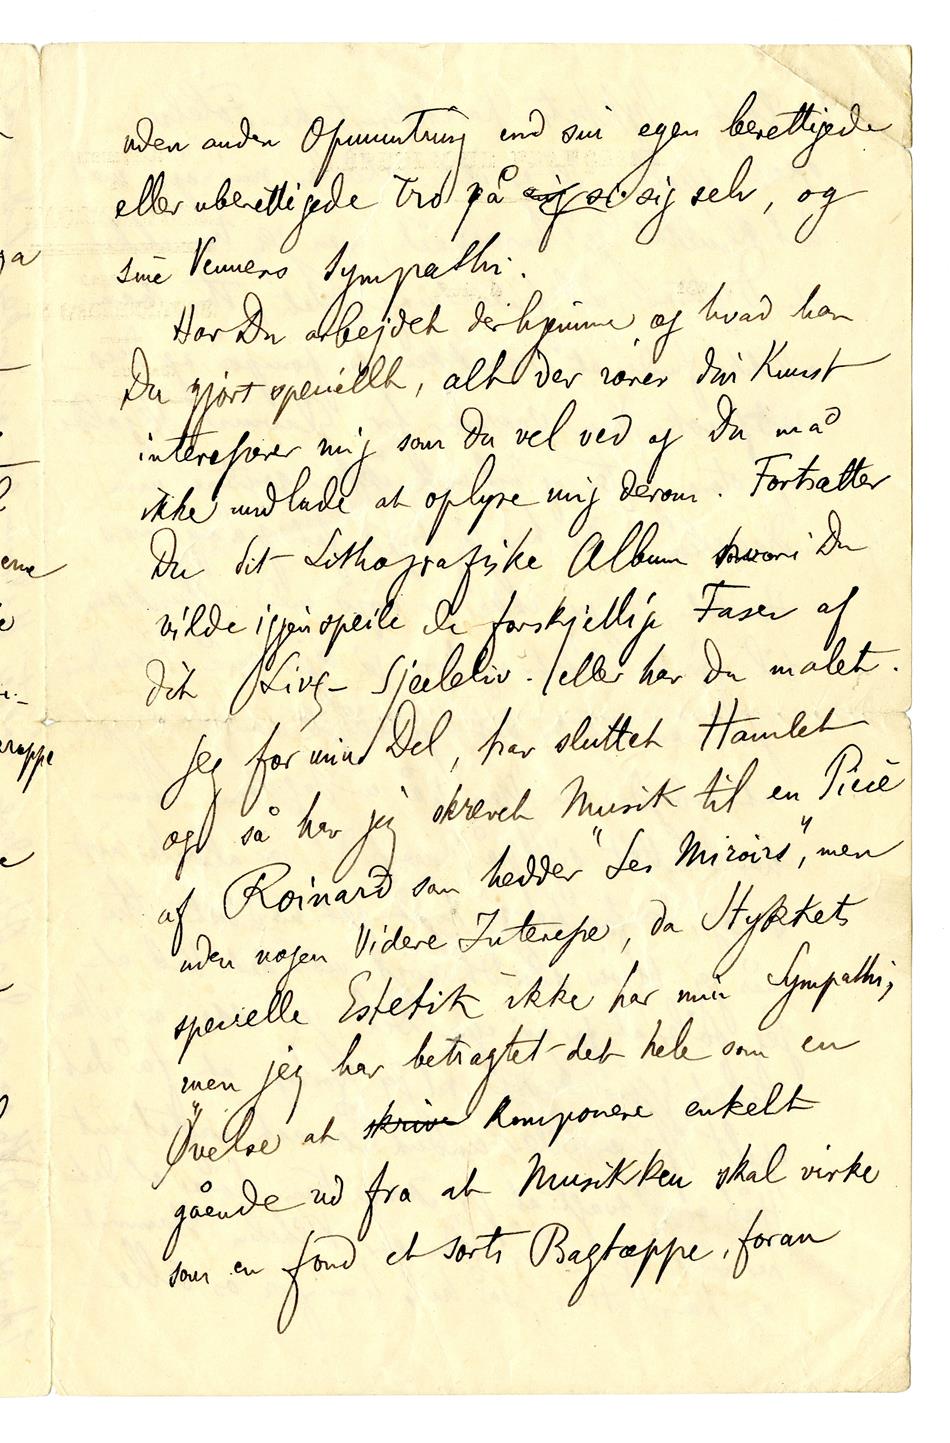 uden anden Opmuntring end sin egen berettigede
eller uberettigede Tro på sig si sig selv, og
sine Venners Sympathi.
Har Du arbejdet derhjemme og hvad har
Du gjort speciellt, alt der rører din Kunst
interesserer mig som Du vel ved og Du må
ikke undlade at oplyse mig derom. Fortsætter
Du dit Lithografiske Album hvori Du
vilde igjenspeile de forskjellige Faser af
dit Livs- Sjæleliv. eller har Du malet.
Jeg for min Del, har sluttet Hamlet
og så har jeg skrevet Musik til en Piece
af Roinard som hedder "Les Miroirs", men
uden nogen Videre Interesse, da Stykkets
specielle Estetik ikke har min Sympathi,
men jeg har betragtet det hele som en
Øvelse at skrive komponere enkelt
gående ud fra at Musikken skal virke
som en fond et sorts Bagtæppe, foran
ga
erne
rappe